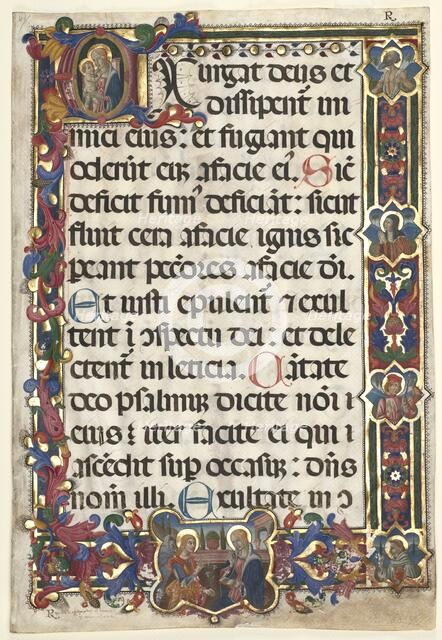 R
EXurgat deus et
dissipent im
mici eius: et fugiant qui
oderūt eū afacie eī. Sic̄
deficit fum⁹ deficiāt: sicut
fluit cera afacie ignis sic
pereant pec̄ores afacie dēi.
Et iusti epulent̄ ⁊ exul
tent ī ↄspectu dei: et dele
ctent̄ in leticia. Cātate
deo psalmū dicite noī ī
eius: iter facite ei qui
ascēdit sup̄ occasū: dn̄s
nom̄ illi. Exultate in ↄ
R
Heritage